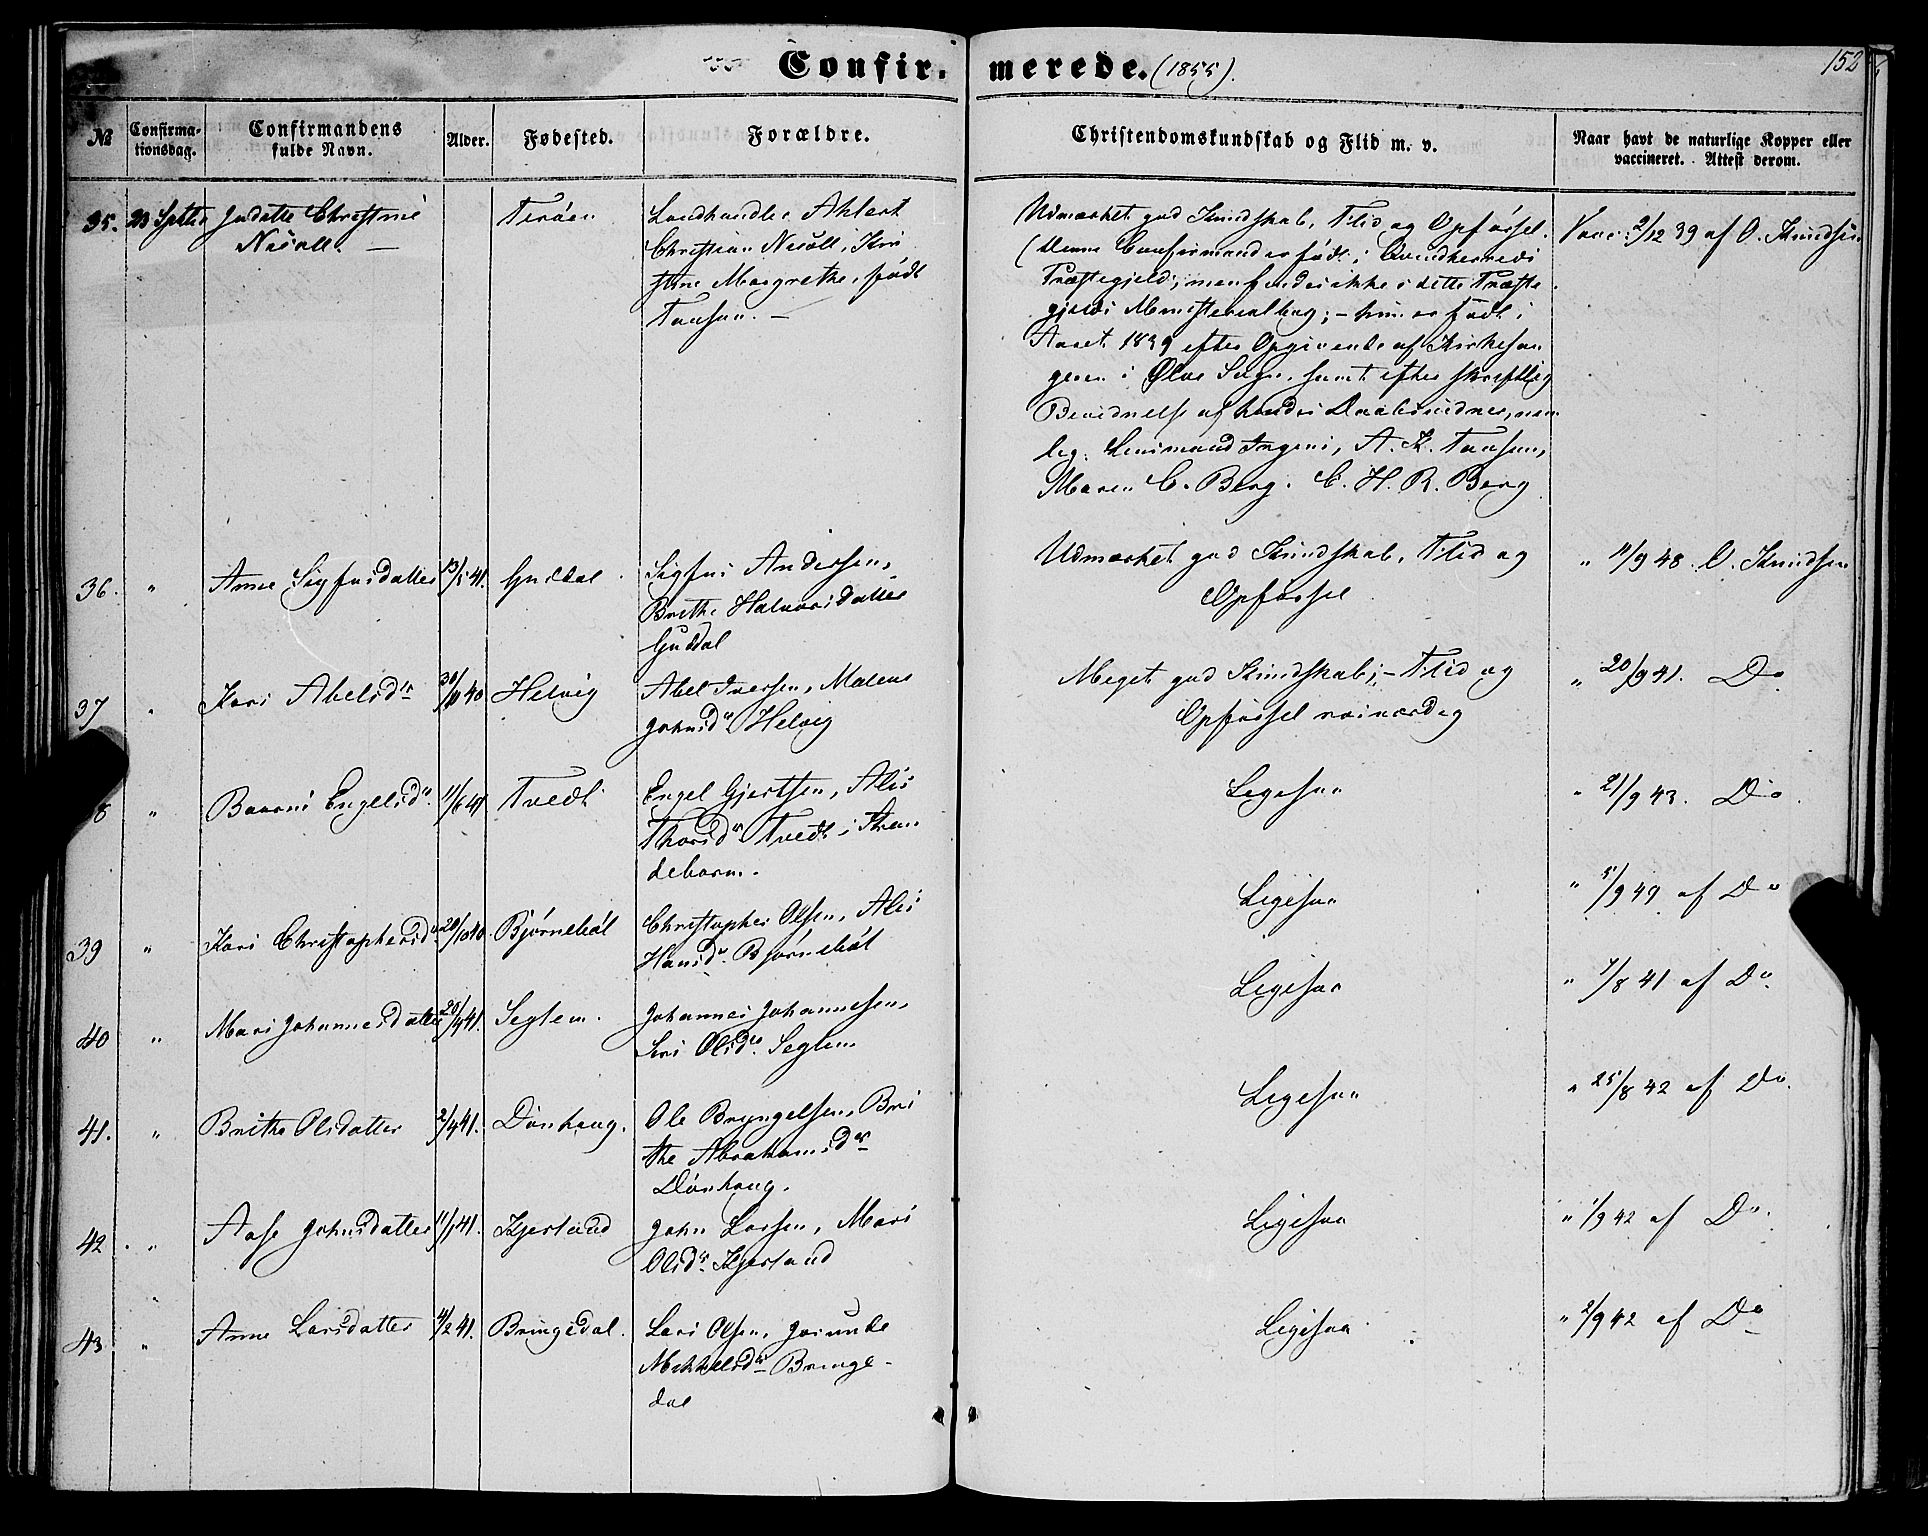 Confirmerede. (1855).
152
№
Confirma-
tionsdag.
Confirmandens
fulde Navn.
Alder.
Fødested.
Forældre.
Christendomskundskab og Flid m. v.
Naar havt de naturlige Kopper eller
vaccineret. Attest derom.
35. 23 Septbr Christine
Terøen
Landhandler Ahlert
Christian
stine Margrethe, født
Udmærket god Kundskab, Flid og Opførsel.
(Denne Confirmand er født i Qvindherreds
Præstegjeld; men findes ikke i dette Præste-
gjelds Ministerialbog; – hun er født i
Aaret 1839 efter Opgivende af Kirkesan
geren i Ølve Sogn, samt efter skriftlig
Bevidnelse af hendes Daabsvidner, nem
lig: Lensmand A. K.
Maren C. Berg. C. H. R. Berg
Vacc. 2/12 39 af O. Knudsen
36. " Anne Sigfusdatter 13/5 41. Guddal
Sigfus Anderssen,
Brithe Halvorsdatter
Guddal
Udmærket god Kundskab, Flid og
Opførsel
" 11/9 48. O. Knudsen
37 " Kari Abelsdr 40 Helvig
Abel Iversen, Malene
Johnsdr Helvig
Meget god Kundskab; – Flid og
Opførsel roesværdig
" 20/9 41. Do
8 " Engelsdr. 11/6 41 Tvedt
Engel Gjertsen, Alis
Thorsdr Tvedt i Stran
debarm.
Ligesaa
" 21/9 43. Do.
39 " Kari Christophersdr. 20/10 40. Bjørnebøl
Christopher Olsen, Alis
Hansdr. Bjørnebøl
Ligesaa
" 5/9 49 af Do
40 " Mari Johannesdatter 41. Seglem.
Johannes Johannesen,
Siri Olsdr. Seglem
Ligesaa
" 7/8 41 af Do.
41. " Brithe Olsdatter 2/4 41. Dønhaug.
Ole Bryngelsen, Bri
the Abrahamsdr
Dønhaug.
Ligesaa
" 25/8 42 af Do.
42. " Aase Johnsdatter 11/1 41. Kjerland
John Larsen, Mari
Olsdr. Kjerland
Ligesaa
" 1/9 42 af Do.
43 " Anne Larsdatter 4/2 41. Bringedal.
Lars Olsen, Gurunde
Mikkelsdr Bringe-
dal
Ligesaa
" 2/9 42 af Do